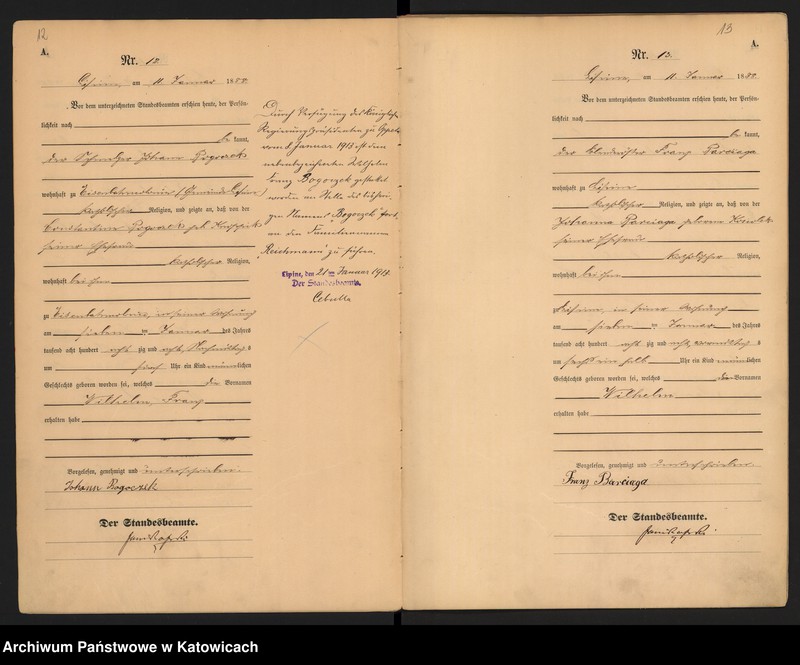 12
A.
Nr. 12.
am 11 Januar 1888
Vor dem unterzeichneten Standesbeamten erschien heute, der Persön-
lichkeit nach
be kannt,
der Johann
wohnhaft zu
katholischer Religion, und zeigte an, daß von der
Constantine geb.
seiner Ehefrau
katholischer Religion,
wohnhaft bei ihm
zu in seiner Wohnung
am sieben ten Januar des Jahres
tausend acht hundert acht zig und acht, Nachmittags
um Uhr ein Kind männlichen
Geschlechts geboren worden sei, welches die Vornamen
Wilhelm, Franz
erhalten habe
Vorgelesen, genehmigt und unterschrieben.
Johann Bogoczek
Der Standesbeamte.
Durch Verfügung des Königlichen
Regierungspräsidenten zu Oppeln
vom 8. Januar 1917 ist dem
nebenbezeichneten Wilhelm
Franz Bogoczek gestattet
worden an Stelle des bisheri-
gen Namens "Bogoczek" fort-
an den Familiennamen
"Reichmann" zu führen.
Lipine, den 21 ten Januar 1917.
Der Standesbeamte.
Cebulla
13
A.
Nr. 13.
am 11 Januar 1888
Vor dem unterzeichneten Standesbeamten erschien heute, der Persön-
lichkeit nach
be kannt,
der Franz Barciaga
wohnhaft zu Lipine
katholischer Religion, und zeigte an, daß von der
Johanna Barciaga geborene
seiner Ehefrau
katholischer Religion,
wohnhaft bei ihm
zu Lipine, in seiner Wohnung
am sieben ten Januar des Jahres
tausend acht hundert acht zig und acht, Vormittags
um sechs ein halb Uhr ein Kind männlichen
Geschlechts geboren worden sei, welches den Vornamen
Wilhelm
erhalten habe
Vorgelesen, genehmigt und unterschrieben
Franz Barciaga
Der Standesbeamte.
Archiwum Państwowe w Katowicach